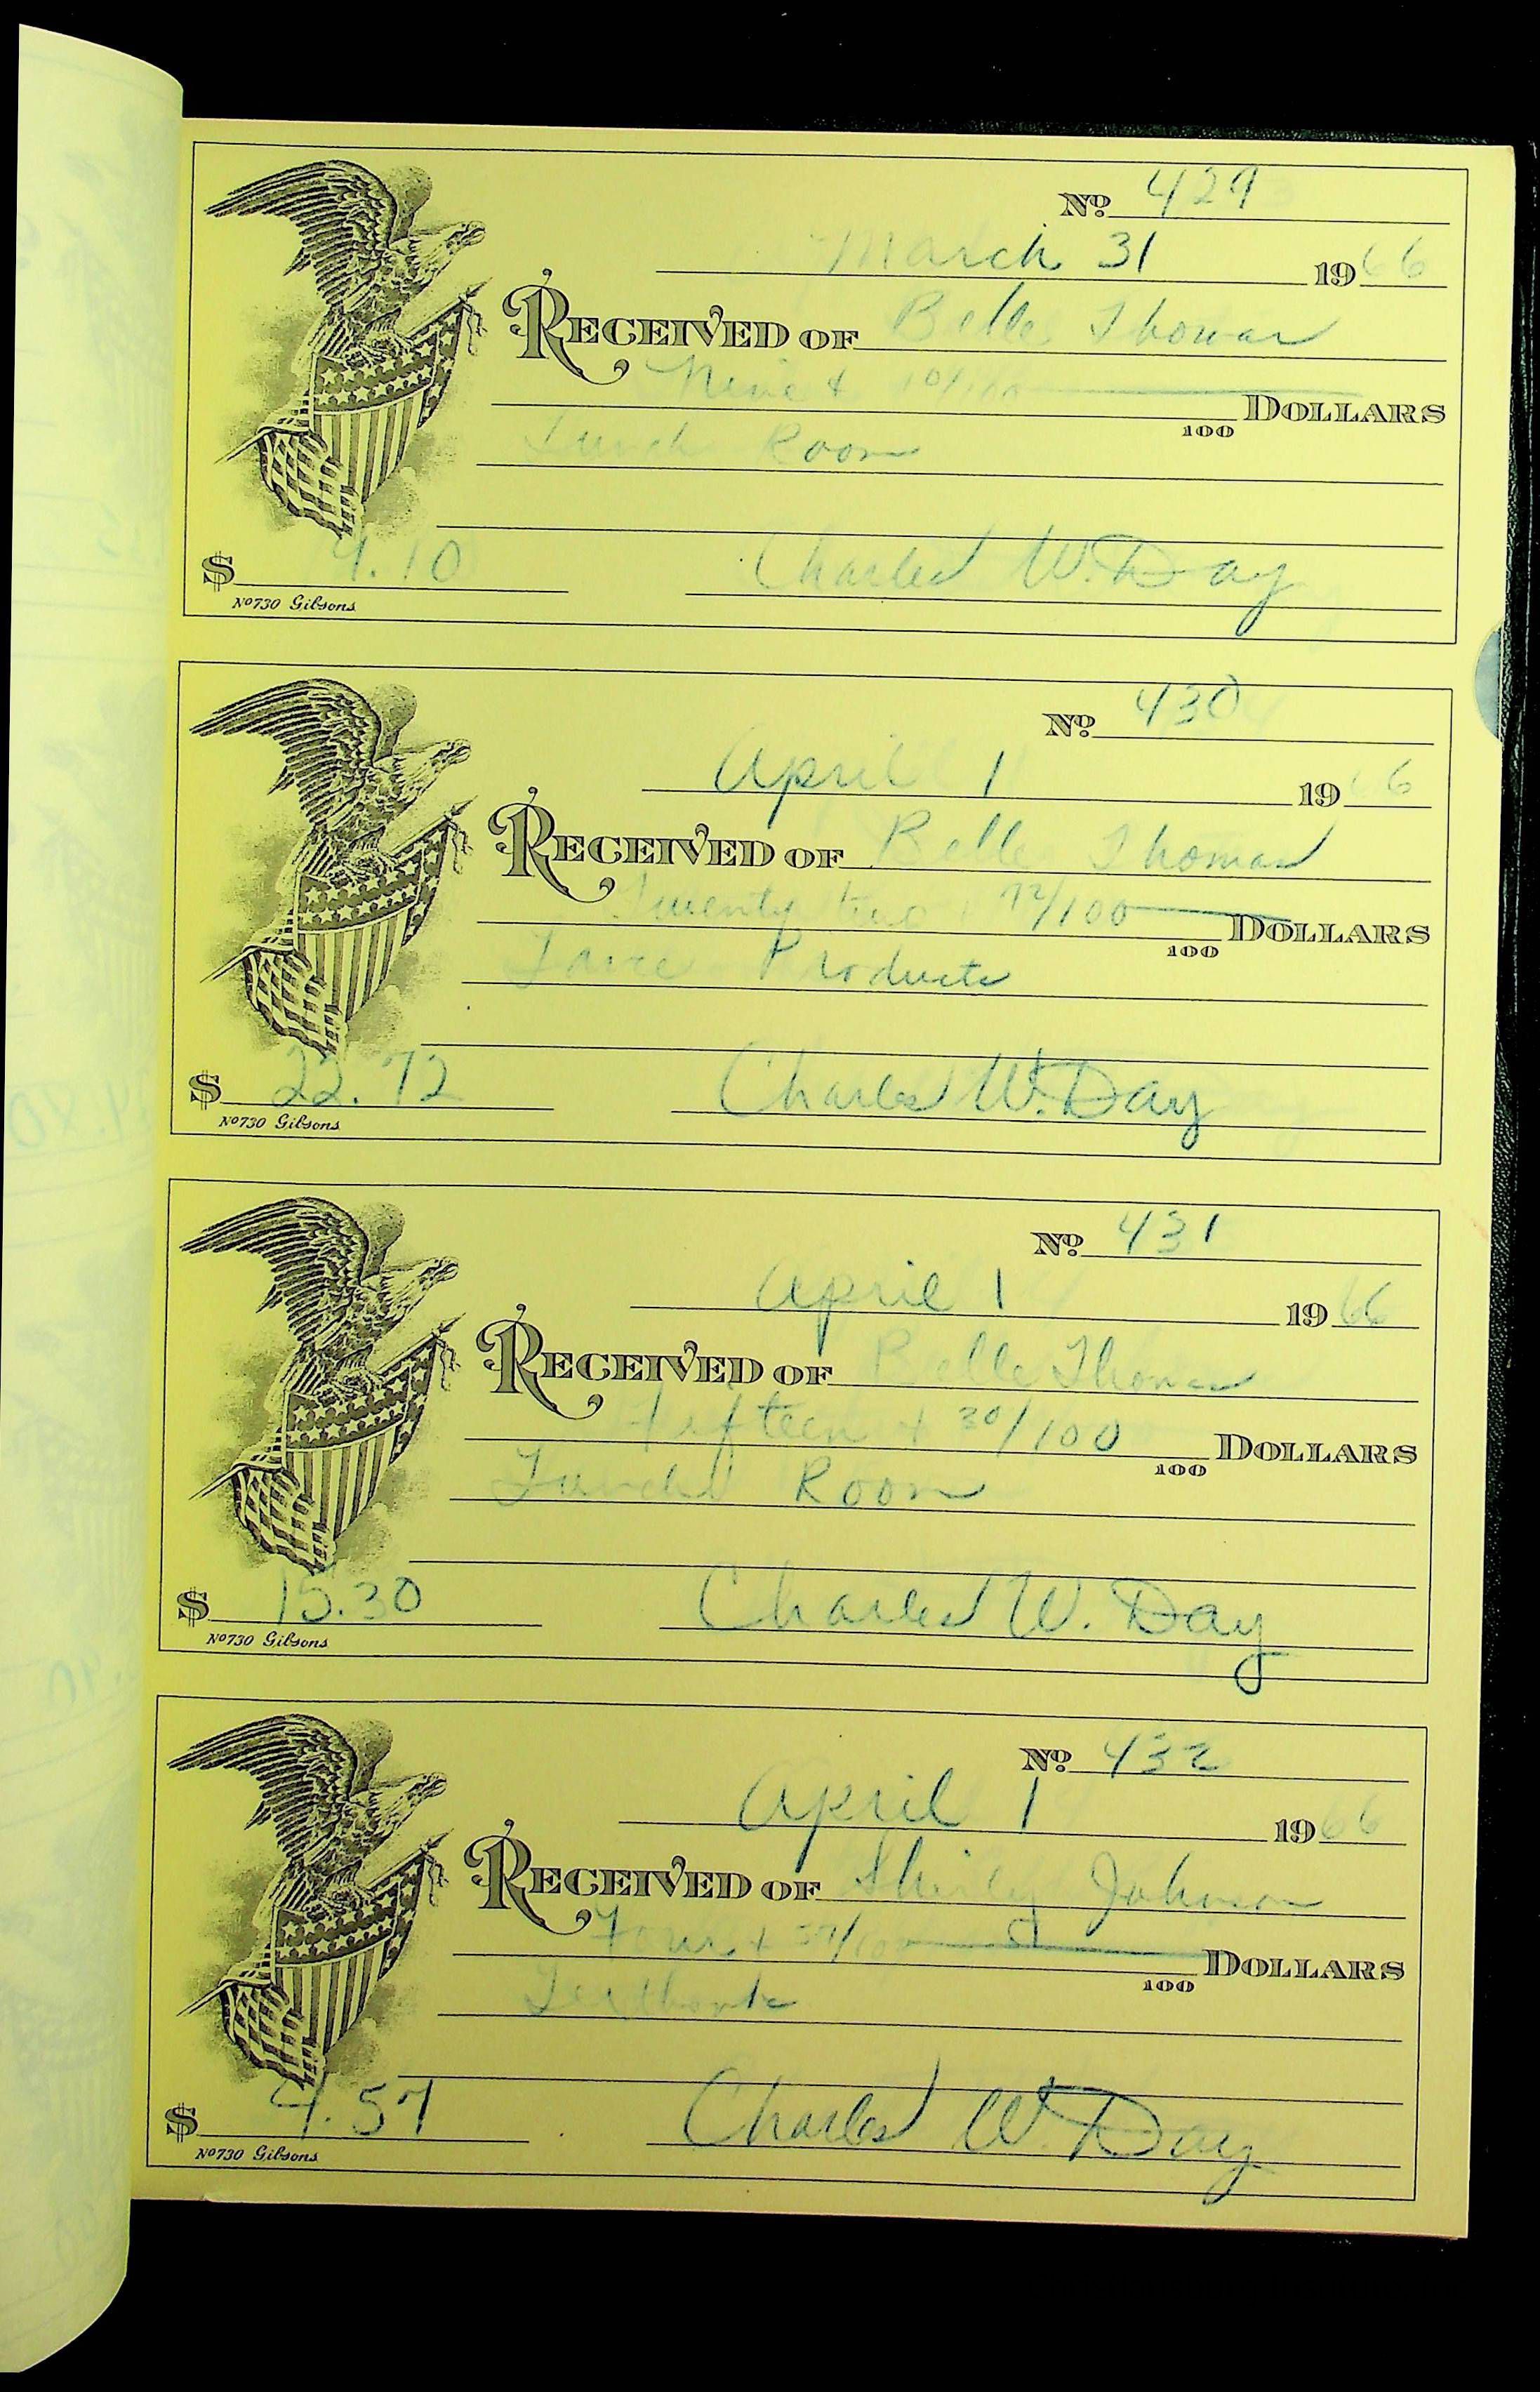 Nº 429
March 31 1966
RECEIVED OF Belle Thomas
Nine & 10/100 DOLLARS
100
Lunch Room
$ 9.10 Charles W. Day
Nº730 Gibsons
Nº 430
April 1 1966
RECEIVED OF Belle Thomas
Twenty two & 72/100 DOLLARS
100
Products
$ 22.72 Charles W. Day
Nº730 Gibsons
Nº 431
April 1 1966
RECEIVED OF Belle Thomas
Fifteen & 30/100 DOLLARS
100
Lunch Room
$ 15.30 Charles W. Day
Nº730 Gibsons
Nº 432
April 1 1966
RECEIVED OF Shirley Johnson
Four & 57/100 DOLLARS
100
Textbooks
$ 4.57 Charles W. Day
Nº730 Gibsons